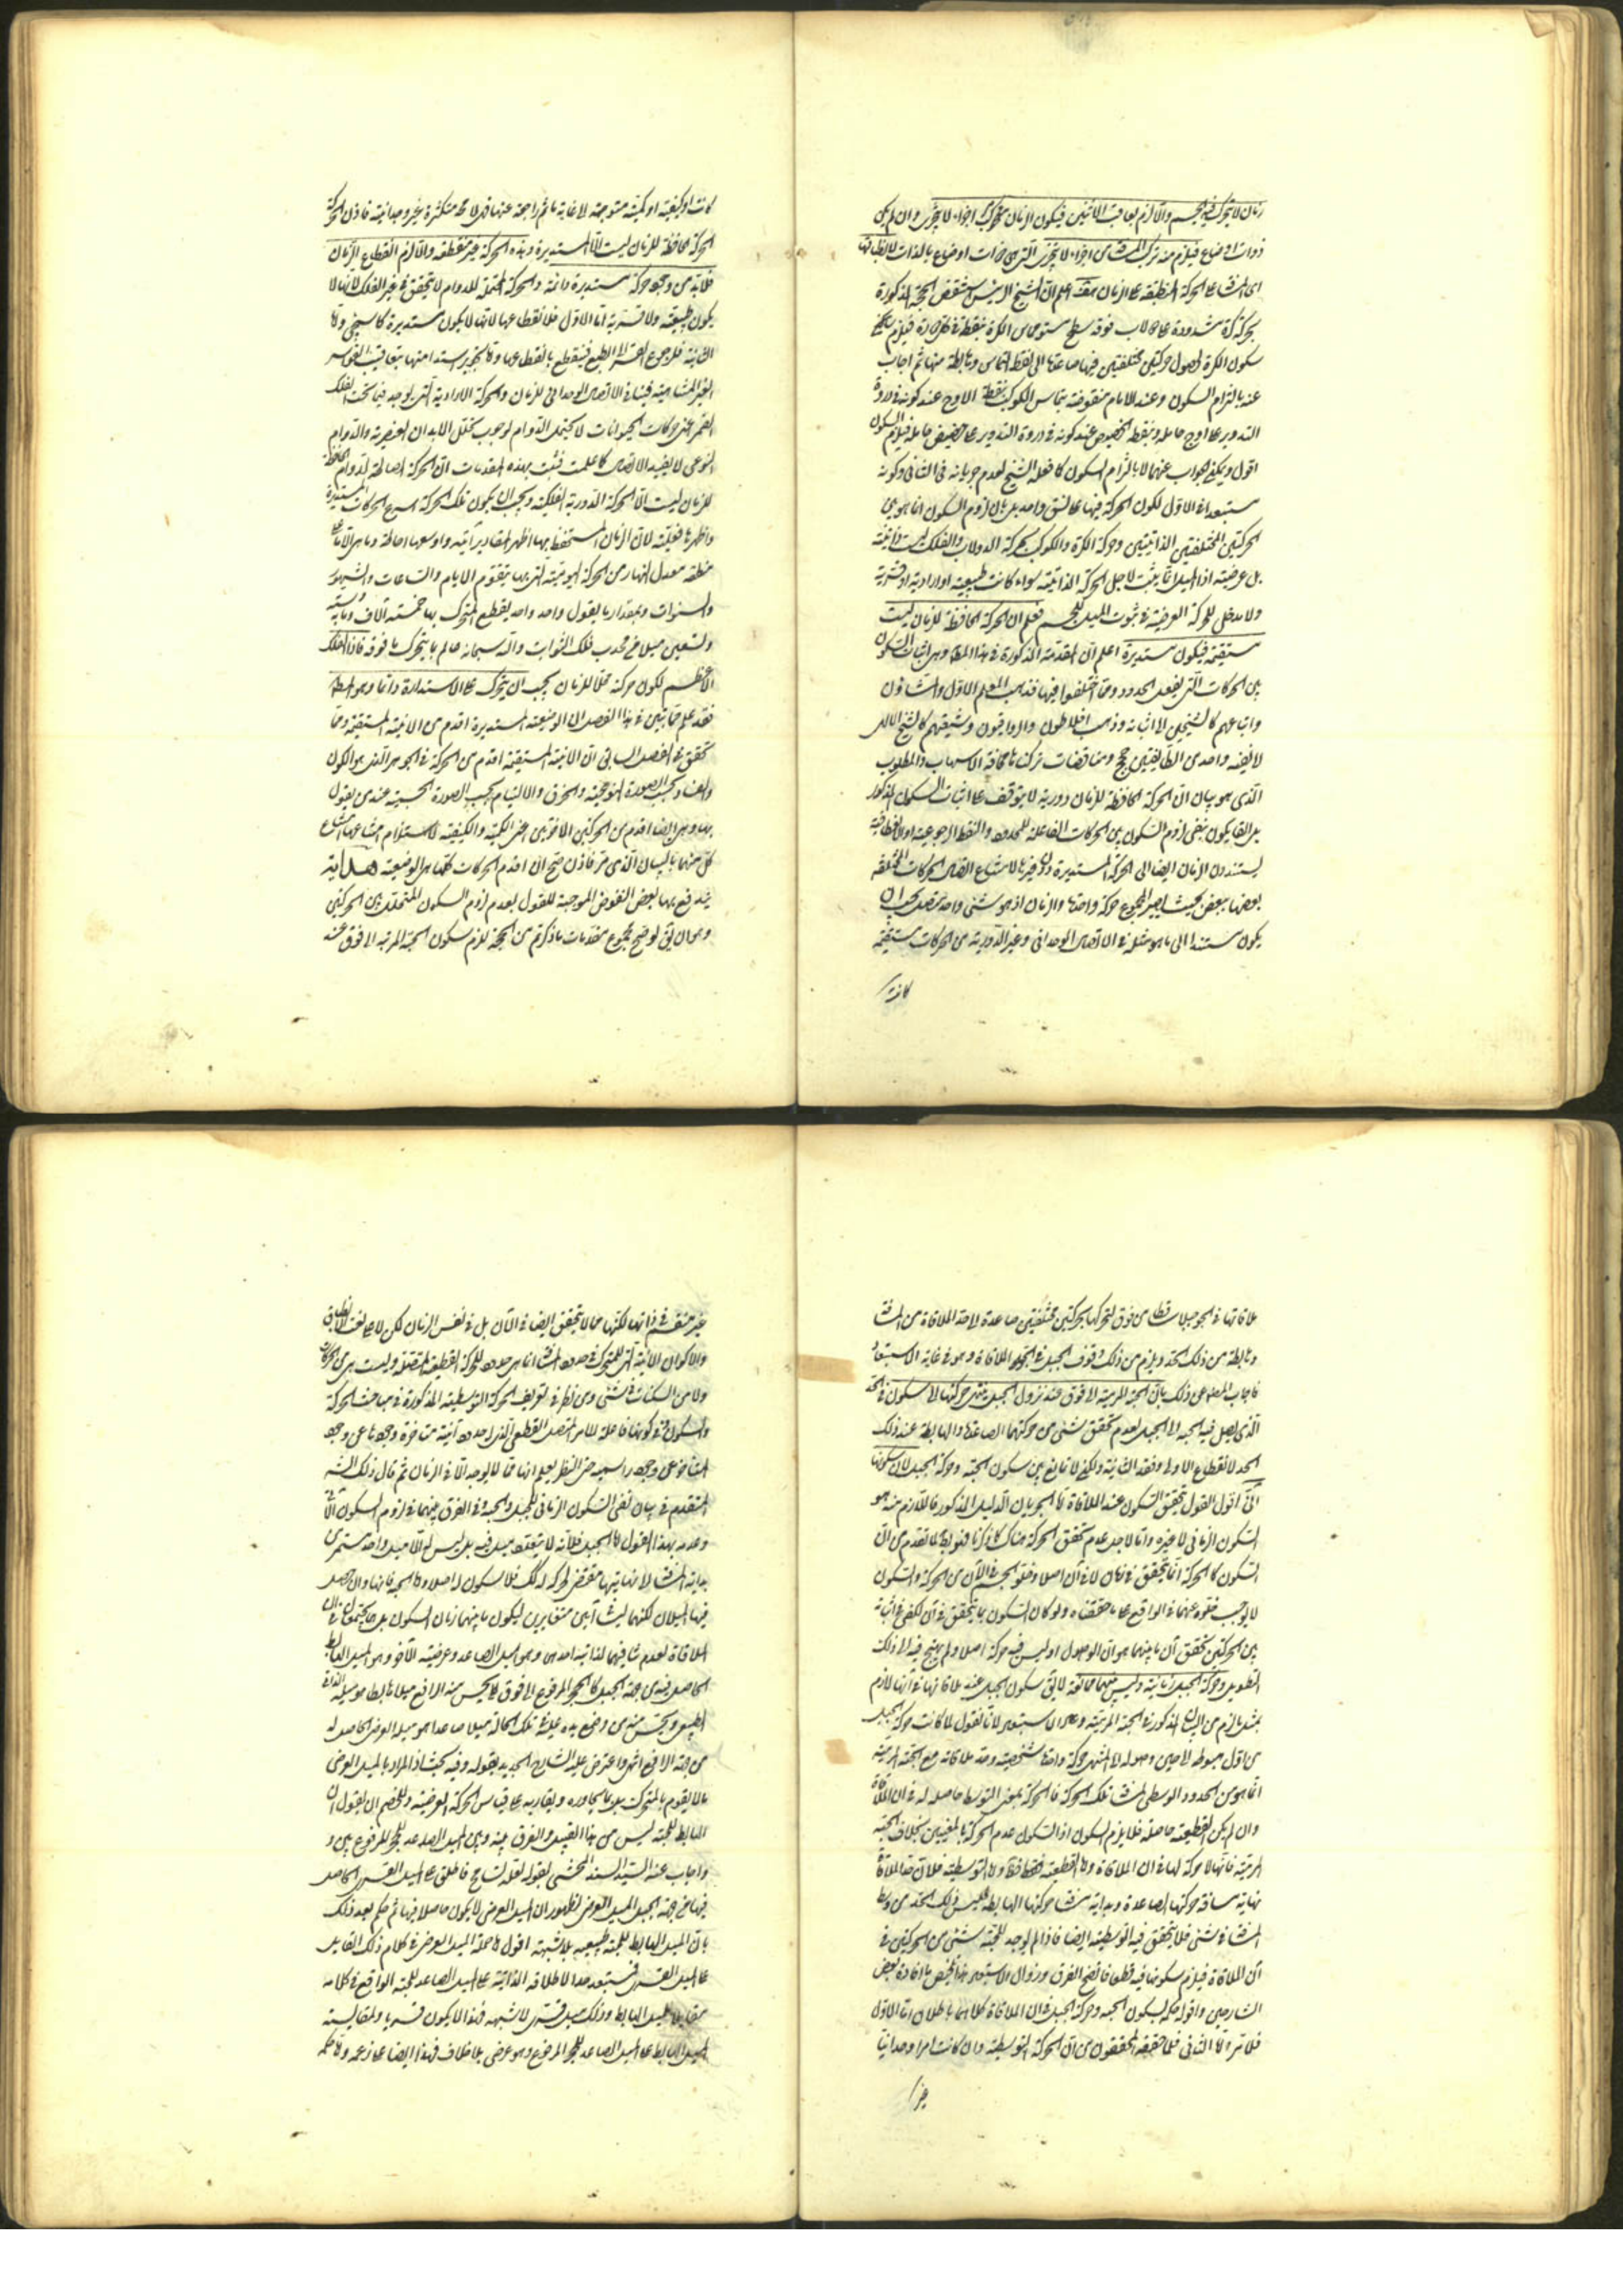 زمان لا يتحرك فيه الجسم والا لزم تعاقب الآنين فيكون الزمان مركبا من اجزاء لا يتجزى وان لم يكن
ذوات اوضاع فيلزم منه تركب المسافة من اجزاء لا يتجزى التي هي ذوات اوضاع بالذات لانطباقها
اى المسافة على الحركة المنطبقة على الزمان اعلم ان الشيخ الرئيس نقض الحجة المذكورة
بحركة كرة مشدودة على دولاب فوقه سطح مستو يماس الكرة بنقطة فيلزم
سكون الكرة لحصول حركتين مختلفتين فيها صاعدة الى نقطة التماس وهابطة منها ثم اجاب
عنه بالتزام السكون وعند الامام منقوضة بتماس الكوكب نقطة الاوج عند كونه في ذروة
التدوير على اوج حامله ونقطة الحضيض عند كونه في ذروة التدوير على حضيض حامله فيلزم السكون
اقول ويمكن الجواب عنهما لا بالتزام السكون كما فعله الشيخ لعدم جريانه في الثاني وكونه
مستبعدا في الاول لكون الحركة فيها على نسق واحد بل بان لزوم السكون انما هو بين
الحركتين المختلفتين الذاتيتين وحركة الكرة والكوكب بحركة الدولاب والفلك ليست ذاتية
بل عرضية اذ الميل انما يثبت لاجل الحركة الذاتية سواء كانت طبيعية او ارادية او قسرية
ولا مدخل للحركة العرضية في ثبوت الميل للجسم فعلم ان الحركة الحافظة للزمان ليست
مستقيمة فيكون مستديرة اعلم ان المقدمة المذكورة في هذا المطلب وهي اثبات السكون
بين الحركات التي يفعل الحدود ومما اختلفوا فيها فذهب المعلم الاول والمشاؤن
واتباعهم كالشيخين الى اثباته وذهب افلاطون والرواقيون وشيعتهم كالشيخ الالهى
لا نفيه ولاحدى الطائفتين حجج ومناقضات تركناها مخافة الاسهاب والمطلوب
الذى هو بيان ان الحركة الحافظة للزمان دورية لا يتوقف على اثبات السكون المذكور
بل القائلون بنفى لزوم السكون بين الحركات الفاعلة للحدود والنقط الرجوعية او الانعطافية
يستندون الزمان ايضا الى الحركة المستديرة دون غيرها لامتناع اتصال الحركات المختلفة
بعضها ببعض بحيث يصير المجموع حركة واحدة والزمان اذ هو شئ واحد متصل يجب ان
يكون مستندا الى ما هو مثله في الاتصال الوحدانى وغير الدورية من الحركات مستقيمة
كانت
كانت او كيفية او كمية متوجهة الى غاية ما ثم راجعة عنها فهى لا محة متكثرة غير وحدانية فاذن الحركة
الحركة الحافظة للزمان ليست الا المستديرة وهذه الحركة غير منقطعة والا لزم انقطاع الزمان
فلابد من وجود حركة مستديرة دائمة والحركة المحتملة للدوام لا يتحقق في غير الفلك لانها لا
يكون طبيعية ولا قسرية اما الاول فلانقطاعها لانها لا يكون مستديرة كما سيجئ واما
الثانية فلرجوع القسر الى الطبع فينقطع بانقطاعها وتجويز استدامتها بتعاقب القواسر
الغير المتناهية فينافى الاتصال الوحدانى للزمان والحركة الارادية التى يوجد فيما تحت الفلك
القمر اعنى حركات الحيوانات لا يحتمل الدوام لوجوب تحلل الابدان العنصرية والدوام
النوعى لا يفيد الاتصال كما علمت فثبت بهذه المقدمات ان الحركة الصالحة لدوام الحافظة
للزمان ليست الا الحركة الدورية الفلكية ويجب ان يكون تلك الحركة اسرع الحركات المستديرة
واظهرها فعلية لان الزمان المستحفظ بها اظهر المقادير آنية واوسعها احاطة وما هى الا ما على
منطقة معدل النهار من الحركة اليومية التى بها يتقوم الايام والساعات والشهور
والسنوات وبمقدار ما يقول واحد واحد يقطع المتحرك بها خمسة آلاف ومائة وستة
وتسعين ميلا من محدب فلك الثوابت والله سبحانه عالم بما يتحرك ما فوقه فاذا الفلك
الاعظم لكون حركته محلا للزمان يجب ان يتحرك على الاستدارة دائما وهو المطلوب
فقد علم مما بين في هذا الفصل ان الوضعية المستديرة اقدم من الاينية المستقيمة ومما
تحقق في الفصل السابق ان الاينية المستقيمة اقدم من الحركة في الجوهر التى هو الكون
والفساد بحسب الصورة النوعية والخرق والالتيام بحسب الصورة الجسمية عند من يقول
بها وهى ايضا اقدم من الحركتين الاخريين اعنى الكمية والكيفية لاستلزام امتناعها امتناع
كل منهما بالبيان الذى مر فاذن صح ان اقدم الحركات كلها هى الوضعية هداية
يندفع بها بعض النقوض الموجبة للقول بعدم لزوم السكون المتخلل بين الحركتين
وهو ان يق لو صح مجموع مقدمات ما ذكرتم من الحجة للزم سكون الحبة المرمية الى فوق عند
ملاقاتها في الجو جبلا ساقطا من فوق لتحركها بحركتين مختلفتين صاعدة الى حد الملاقاة من المسافة
وهابطة من ذلك الحد ويلزم من ذلك وقوف الجبل في الجو عند الملاقاة وهو في غاية الاستبعاد
فاجاب المصنف عن ذلك بان الحبة المرمية الى فوق عند نزول الجبل ينتهى حركتها الى سكون في الحد
الذى يصل فيه الحبة الى الجبل لعدم تحقق شئ من حركتها الصاعدة والهابطة عند ذلك
الحد لانقطاع الاولى وفقد الثانية ولكن لا تمانع بين سكون الحبة وحركة الجبل لان سكونها
آنى اقول القول بتحقق السكون عند الملاقاة اما لجريان الدليل المذكور فاللازم منه هو
السكون الزمانى لا غيره واما لاجل عدم تحقق الحركة هناك كما ذكرنا فهو باطل لما تقدم من ان
السكون كالحركة انما يتحقق في زمان لا في آن اصلا وخلو الجسم في الآن من الحركة والسكون
لا يوجب خلوه عنهما في الواقع على ما حققناه ولو كان السكون مما يتحقق في آن لكفى في اثباته
بين الحركتين تحقق آن ما بينهما هو آن الوصول او ليس فيه حركة اصلا ولم يحتج فيه الى ذلك
التطويل وحركة الجبل زمانية وليس بينهما ممانعة لا يق سكون الجبل عند ملاقاتها في آنها لازم
بمثل ما لزم من البيان المذكور في الحبة المرمية وهو الاستبعاد لانا نقول لما كانت حركة الجبل
من اول هبوطه الى حين وصوله الى المنتهى حركة واحدة شخصية وحد ملاقاته مع الحبة المرمية
انما هو من الحدود الوسطى لمسافة تلك الحركة فالحركة بمعنى التوسط حاصلة له في آن الملاقاة
وان لم يكن القطعية حاصلة فلا يلزم السكون اذ السكون عدم الحركة بالمعنيين بخلاف الحبة
المرمية فانها لا حركة لها في آن الملاقاة اما القطعية فظاهرة واما التوسطية فلان حد الملاقاة
نهاية مسافة حركتها الصاعدة وبداية مسافة حركتها الهابطة فليس ذلك الحد من وسط
المسافة في شئ فلا يتحقق فيه التوسطية ايضا فاذا لم يوجد للحبة شئ من الحركتين في
آن الملاقاة فيلزم سكونها فيه قطعا فاتضح الفرق وزوال الاستبعاد هذا ملخص ما افاده بعض
الشارحين واقول حكمه بسكون الحبة وحركة الجبل في آن الملاقاة كلاهما باطلان اما الاول
فلما مر واما الثانى فلما حققه المحققون من ان الحركة التوسطية وان كانت امرا وحدانيا
غير
غير منقسم في ذاتها لكنها مما لا يتحقق ايضا في الآن بل في نفس الزمان لكن لا على نعت الانطباق
والاكوان الآنية التى للمتحرك في حدود المسافة انما هى حدود للحركة القطعية المتصلة وليست هى من الحركات
ولا من السكنات في شئ ومن نظر في تعريف الحركة التوسطية المذكورة في مباحث الحركة
والسكون وفى كونها فاعلة للامر المتصل القطعى الذى له حدود آنية متاخرة وجودها عن وجوده
المتاخر عن وجود راسمه حق النظر يعلم انها مما لا يوجد الا في الزمان ثم قال ذلك الشارح
المتقدم في بيان نفى السكون الزمانى للجبل والحبة وفى الفرق بينهما في لزوم السكون الآنى
وعدمه بهذا القول اما الجبل فلانه لا يتعدد ميل فيه بل ليس له الا ميل واحد مستمر من
بداية المسافة الى نهايتها مقتض لحركته كذلك فلا سكون له اصلا واما الحبة فانها وان حصل
فيها ميلان لكنهما ليسا آنيين متغايرين ليكون ما بينهما زمان السكون بل هما يجتمعان في آن
الملاقاة لعدم تنافيهما لذاتية احدهما وهو الميل الصاعد وعرضية الآخر وهو الميل الهابط
الحاصل فيه من جهة الجبل كما الحجر المرفوع الى فوق لا يحس منه الرافع ميلا هابطا هو ميله الذاتى
الطبيعى ويحس منه من وضع يده عليه في تلك الحالة ميلا صاعدا هو ميله العرضى الحاصل له
من جهة الرافع انتهى واعترض عليه الشارح الجديد بقوله وفيه بحث اذ المراد بالميل العرضى
ما لا يقوم بالمتحرك بل بما يجاوره ويقارنه على قياس الحركة العرضية وللخصم ان يقول ان
الهابط للحبة ليس من هذا القبيل والفرق بينه وبين الميل الصاعد للحجر المرفوع بين و
واجاب عنه السيد السند المحشى بقوله لعله تسامح فاطلق على الميل القسرى الحاصل
فيها من جهة الجبل الميل العرضى لظهور ان الميل العرضى لا يكون حاصلا فيها ثم حكم بعد ذلك
بان الميل الهابط للحبة طبيعيه بلا شبهة اقول حمل الميل العرضى في كلام ذلك القايل
على الميل القسرى مستبعد جدا لاطلاقه الذاتية على الميل الصاعد للحبة الواقع في كلامه
مقابلا للميل الهابط وذلك ميل قسرى لا شبهة فهذا لا يكون قسريا ولمقايسته
الميل الهابط على الميل الصاعد للحجر المرفوع وهو عرضى بلا خلاف فهذا ايضا على زعمه واما حكمه